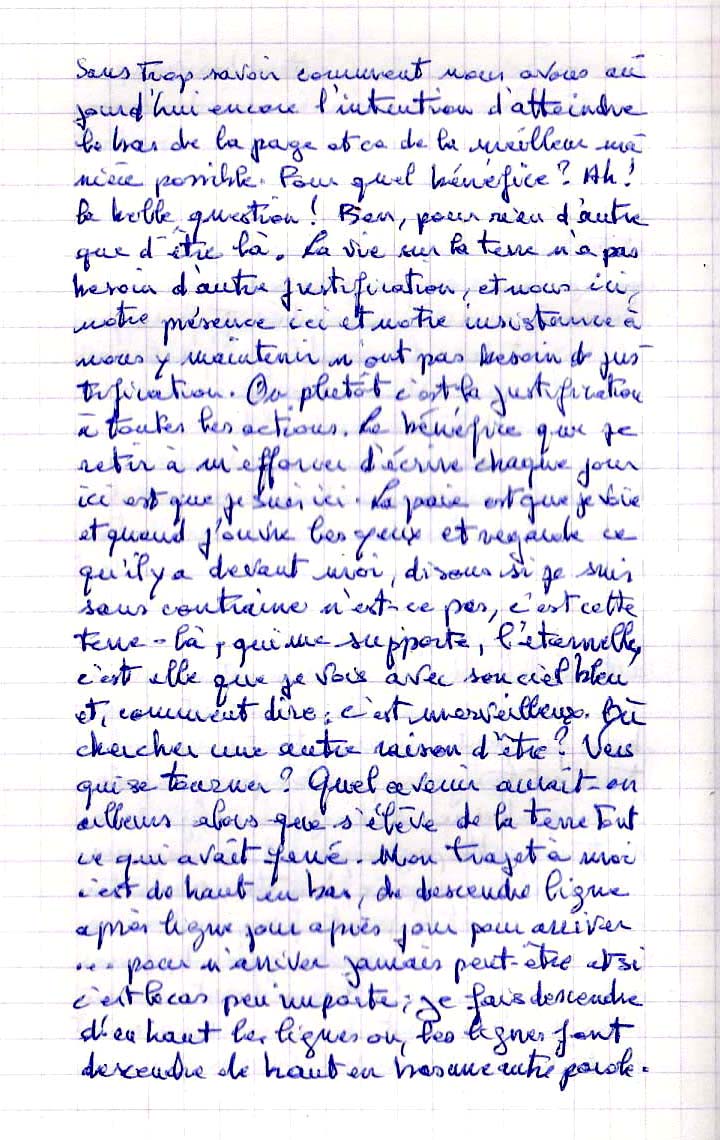 Sans trop savoir comment nous avons au
jourd'hui encore l'intention d'atteindre
le bas de la page et ce de la meilleur ma
nière possible. Pour quel bénéfice? Ah!
la belle question! Ben, pour rien d'autre
que d'être là. La vie sur la terre n'a pas
besoin d'autre justification, et nous ici,
notre présence ici et notre insistance à
nous y maintenir n'ont pas besoin de jus
tification. Ou plutôt c'est la justification
à toutes les actions. Le bénéfice que je
retir à m'efforcer d'écrire chaque jour
ici est que je suis ici. La paie est que je vois
et quand j'ouvre les yeux et regarde ce
qu'il y a devant moi, disons si je suis
sans contraine n'est-ce pas, c'est cette
terre-là, qui me supporte, l'éternelle,
c'est elle que je vois avec son ciel bleu
et, comment dire; c'est merveilleux. Où
chercher une autre raison d'être? Vers
qui se tourner? Quel avenir aurait-on
ailleurs alors que s'élève de la terre tout
ce qui avait fané. Mon trajet à moi
c'est de haut en bas, de descendre ligne
après ligne jour après jour pour arriver
... pour n'arriver jamais peut-être et si
c'est le cas peu importe; je fais descendre
d'en haut les lignes ou, les lignes font
descendre de haut en bas une autre parole.